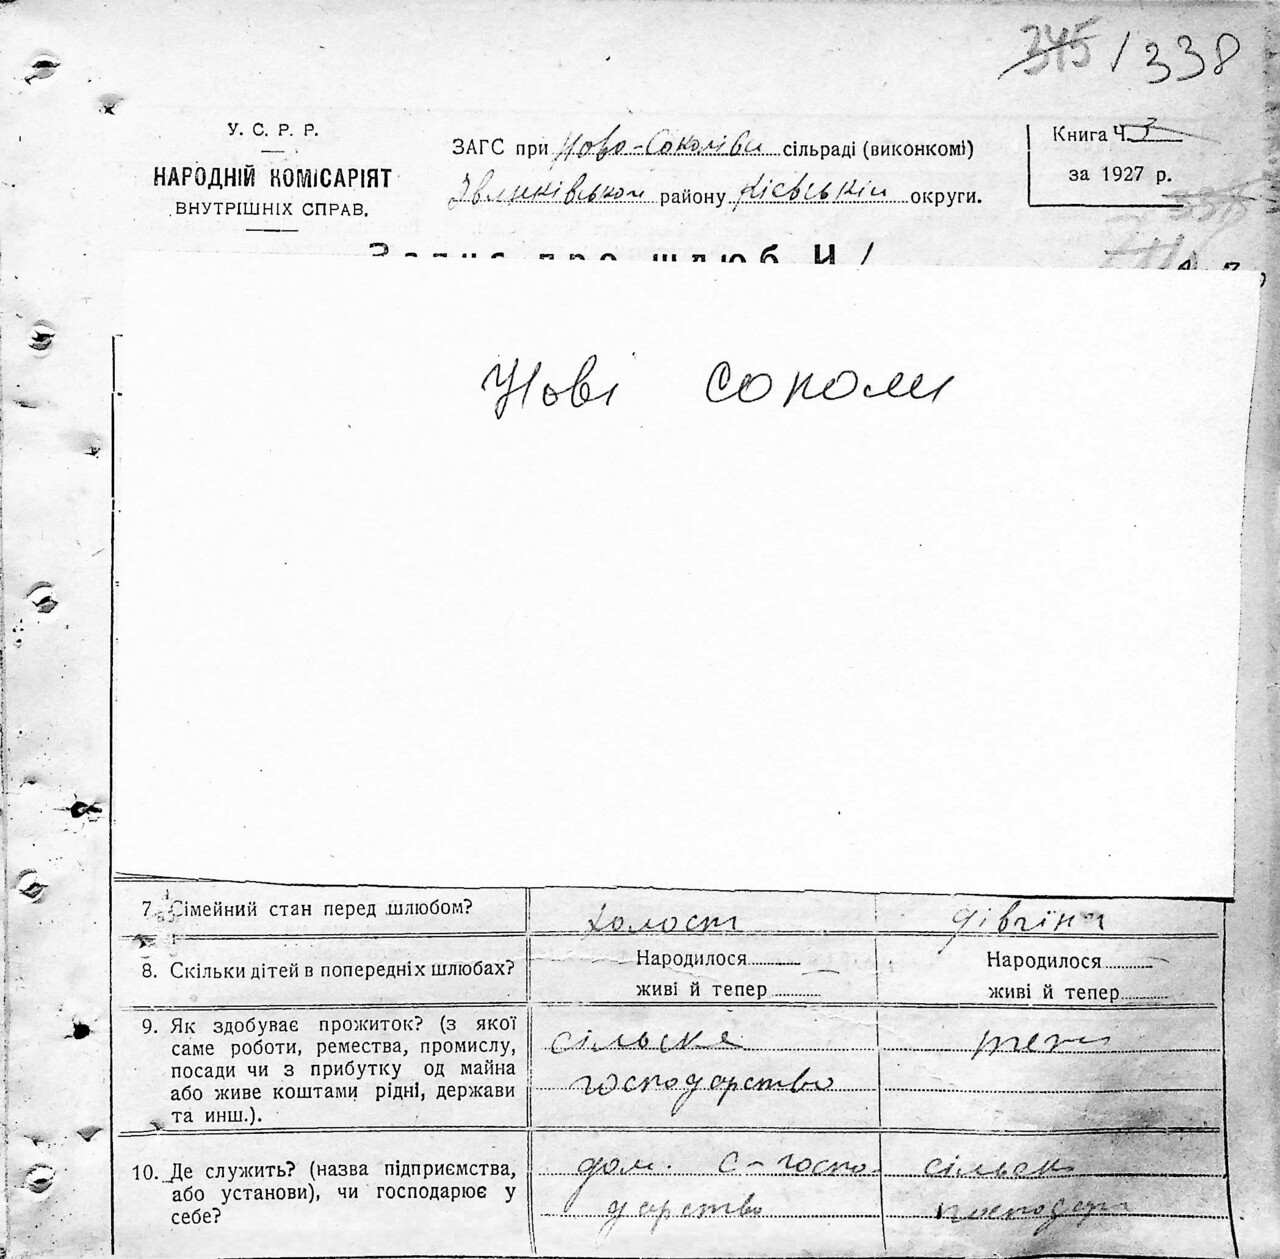 345 / 338
У. С. Р. Р.
НАРОДНІЙ КОМІСАРІЯТ
ВНУТРІШНІХ СПРАВ.
ЗАГС при Ново-Соколівськ сільраді (виконкомі)
району Київській округи.
Книга Ч. 3
за 1927 р.
Запис про шлюб Ч
Нові Соколи
7. Сімейний стан перед шлюбом?
холост
дівчина
8. Скільки дітей в попередніх шлюбах?
Народилося
живі й тепер
Народилося
живі й тепер
9. Як здобуває прожиток? (з якої
саме роботи, ремества, промислу,
посади чи з прибутку од майна
або живе коштами рідні, держави
та инш.).
сільське
господарство
теж
10. Де служить? (назва підприємства,
або установи), чи господарює у
себе?
дом. с-госпо-
дарство
сільськ
господар